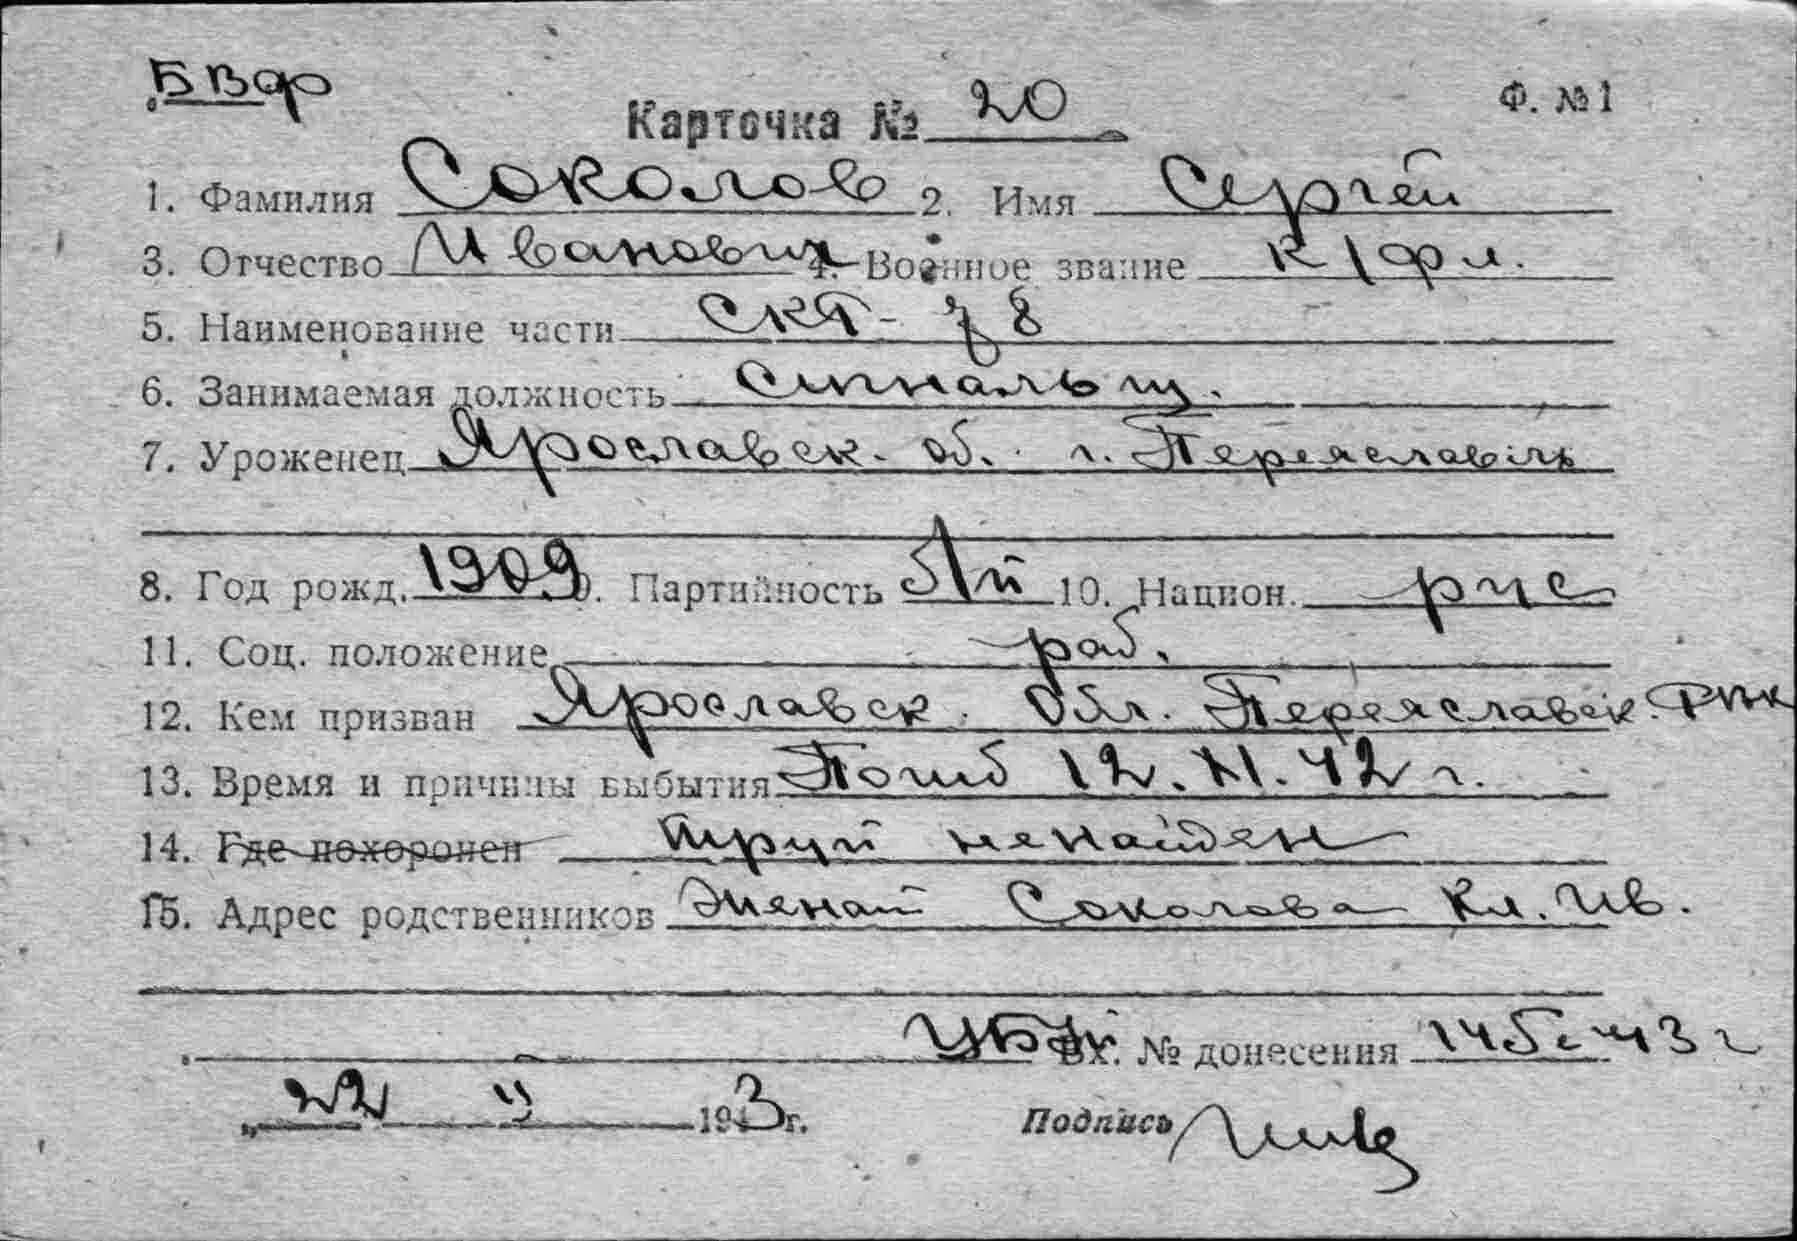 БВф
Карточка № 20 Ф. №1
1. Фамилия Соколов 2. Имя Сергей
3. Отчество Иванович 4. Военное звание к/фл.
5. Наименование части СКА- 8
6. Занимаемая должность сигнальщ.
7. Уроженец Ярославск. об. г. Переяславль
8. Год рожд. 1909 9. Партийность 10. Национ. рус
11. Соц. положение раб.
12. Кем призван Ярославск. Обл. Переяславск. РВК
13. Время и причины выбытия Погиб 12.XI.42 г.
14. Где похоронен труп ненайден
15. Адрес родственников Жена Соколова Кл. Ив.
Вх. № донесения 145с 43 г
„22 II 1943 г. Подпись